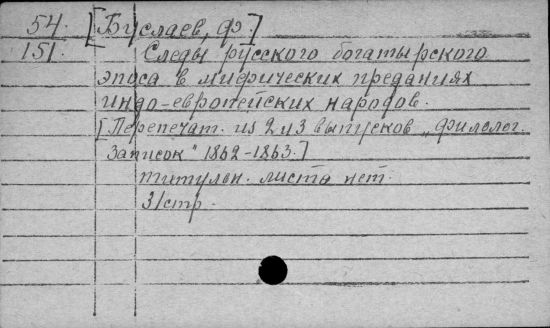 54. [Буслаев, Ф.]
151. Следы русского богатырского
эпоса в мифических преданиях
индо-европейских народов.
[Перепечат. из 2 и 3 выпусков „Филолог.
Записок" 1862-1863.]
титульн. листа нет.
31 стр.